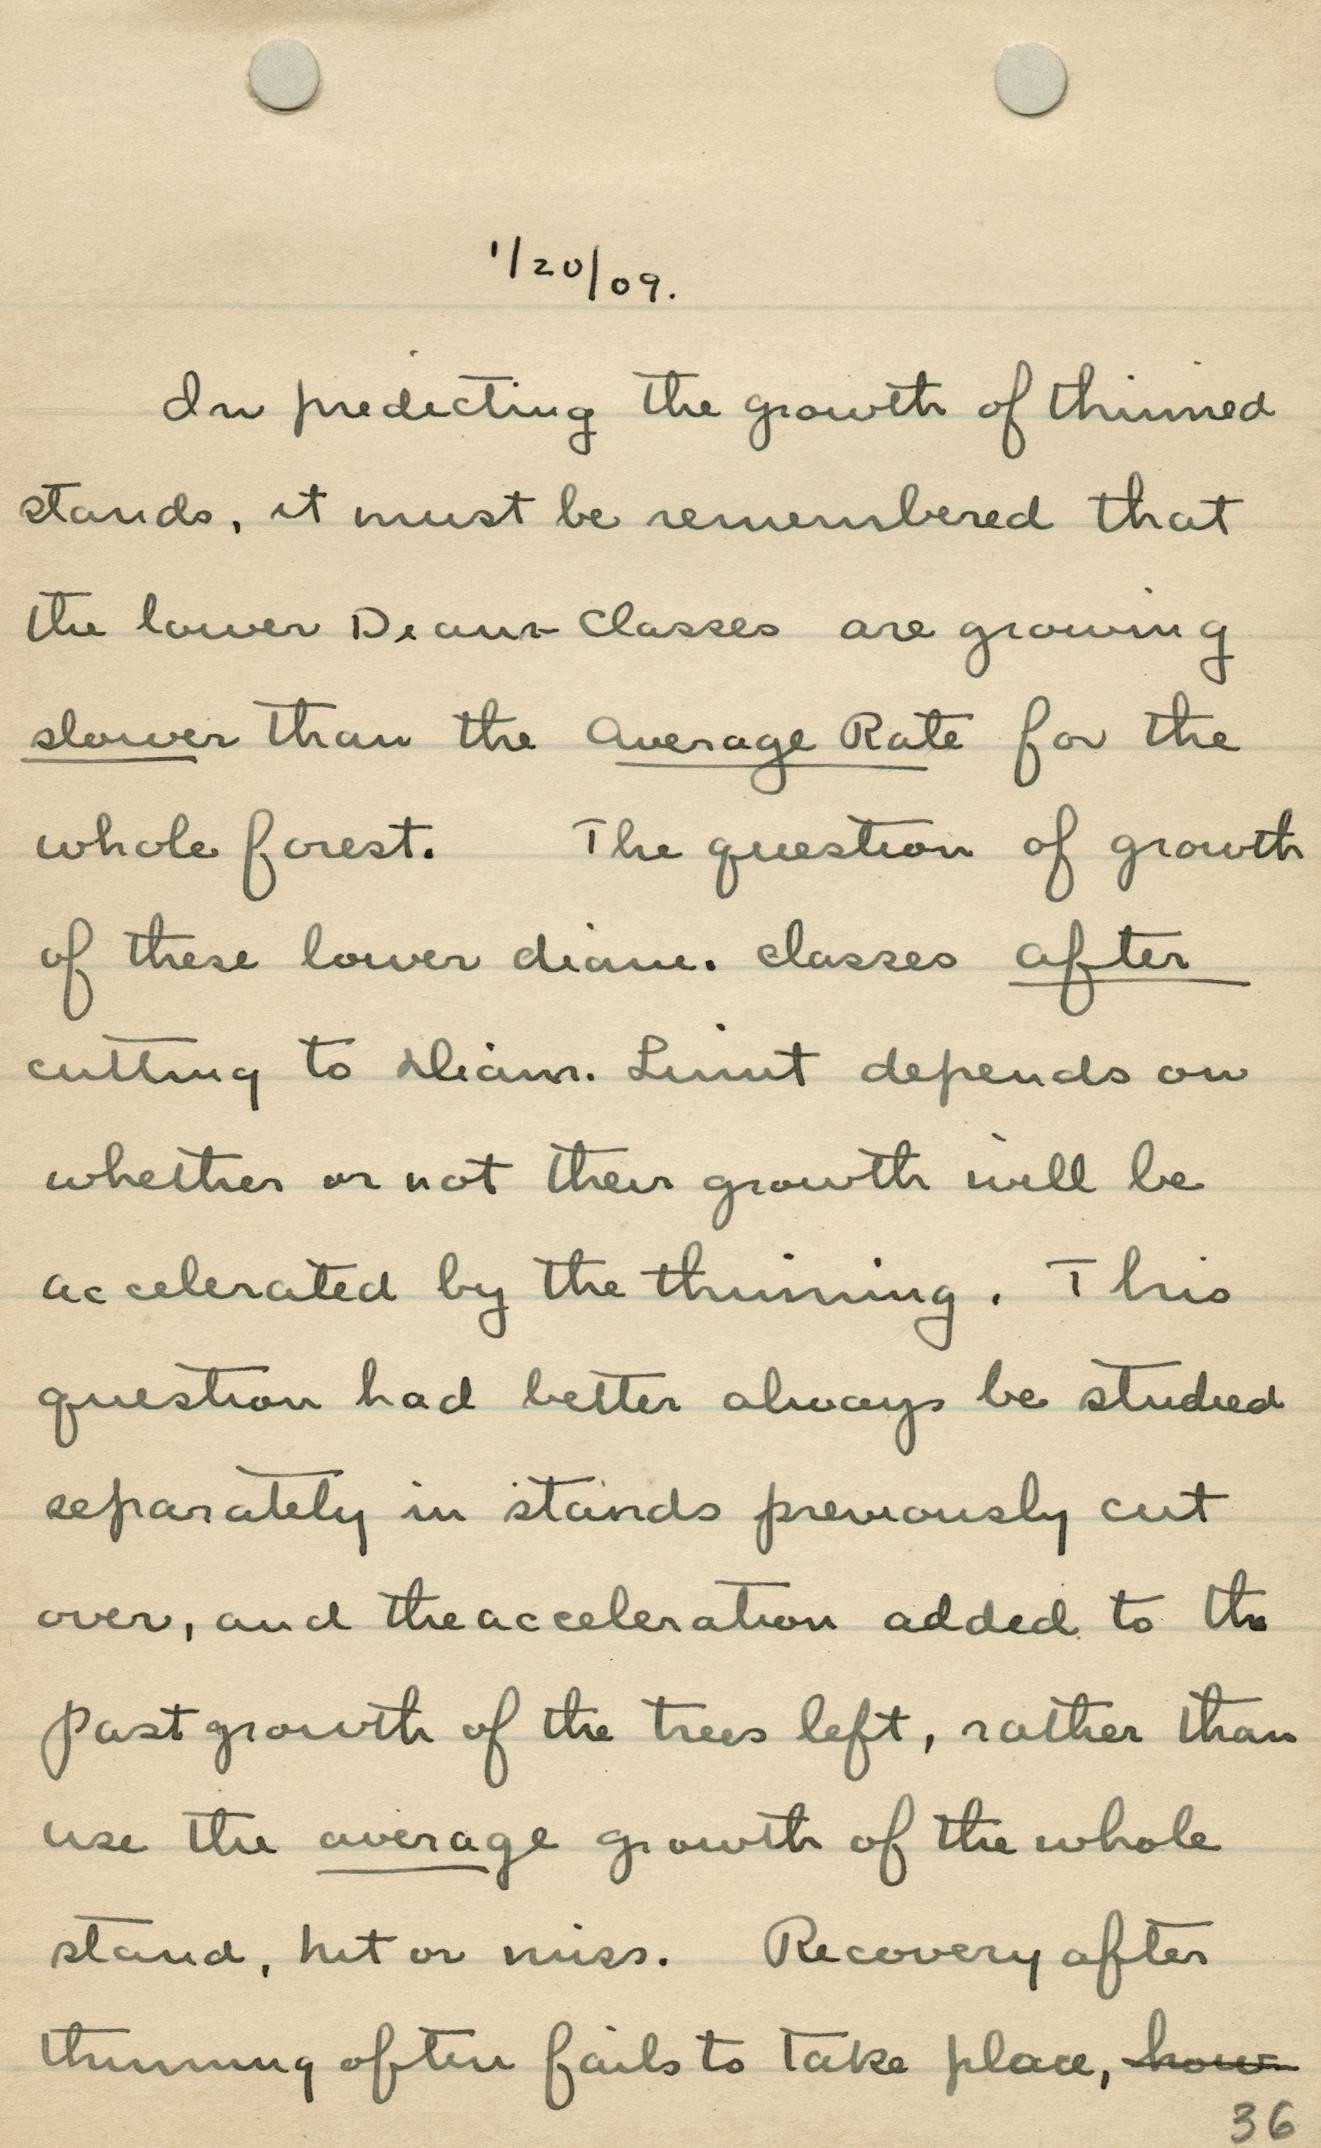 1/20/09.
In predicting the growth of thinned
stands, it must be remembered that
the lower Diam- Classes are growing
slower than the Average Rate for the
whole forest. The question of growth
of these lower diam. classes after
cutting to Diam. Limit depends on
whether or not their growth will be
accelerated by the thinning. This
question had better always be studied
separately in stands previously cut
over, and the acceleration added to the
past growth of the trees left, rather than
use the average growth of the whole
stand, hit or miss. Recovery after
thinning often fails to take place, how-
36